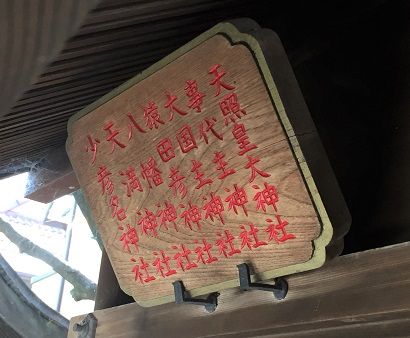 天照皇大神社
事代主神社
大国主神社
猿田彦神社
八幡神社
天満神社
少彦名神社